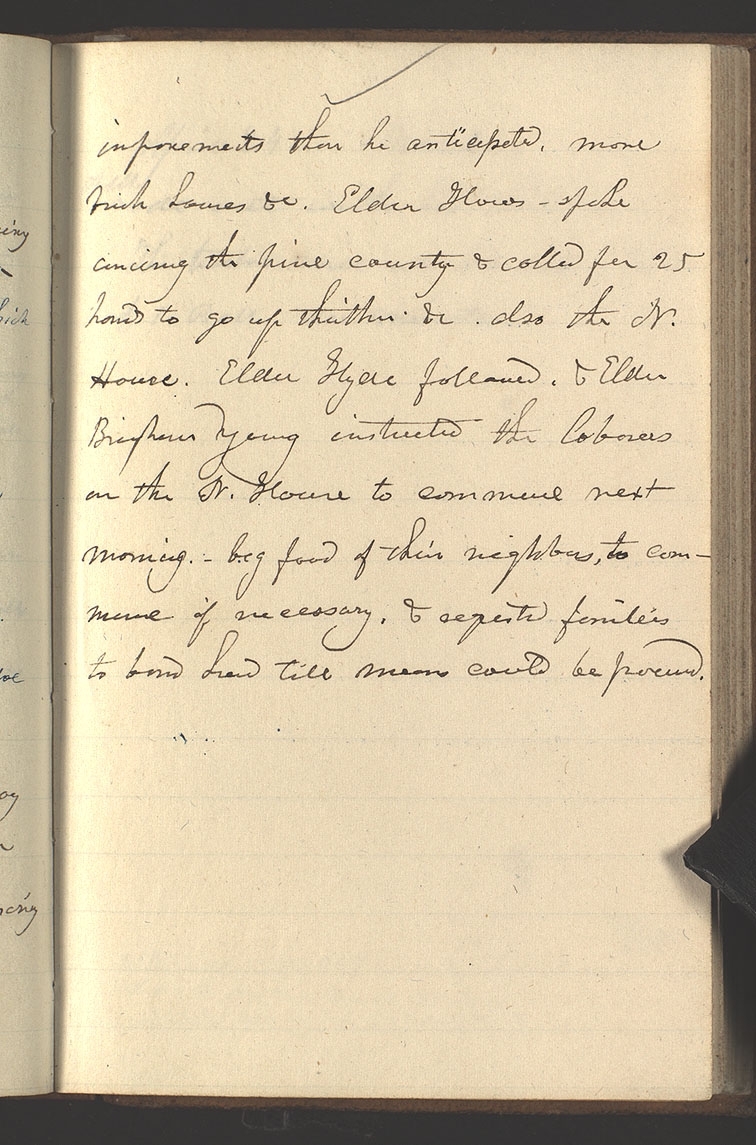 improvements than he anticipated. more
brick houses &c. Elder Haws - spoke
concerning the pine country & called for 25
hands to go up thither &c. also the N.
House. Elder Hyde followed. & Elder
Brigham Young instructed the laborers
on the N. House to commence next
morning. - beg food of their neighbors, to com-
mence if necessary. & requested families
to board hands till means could be procured.